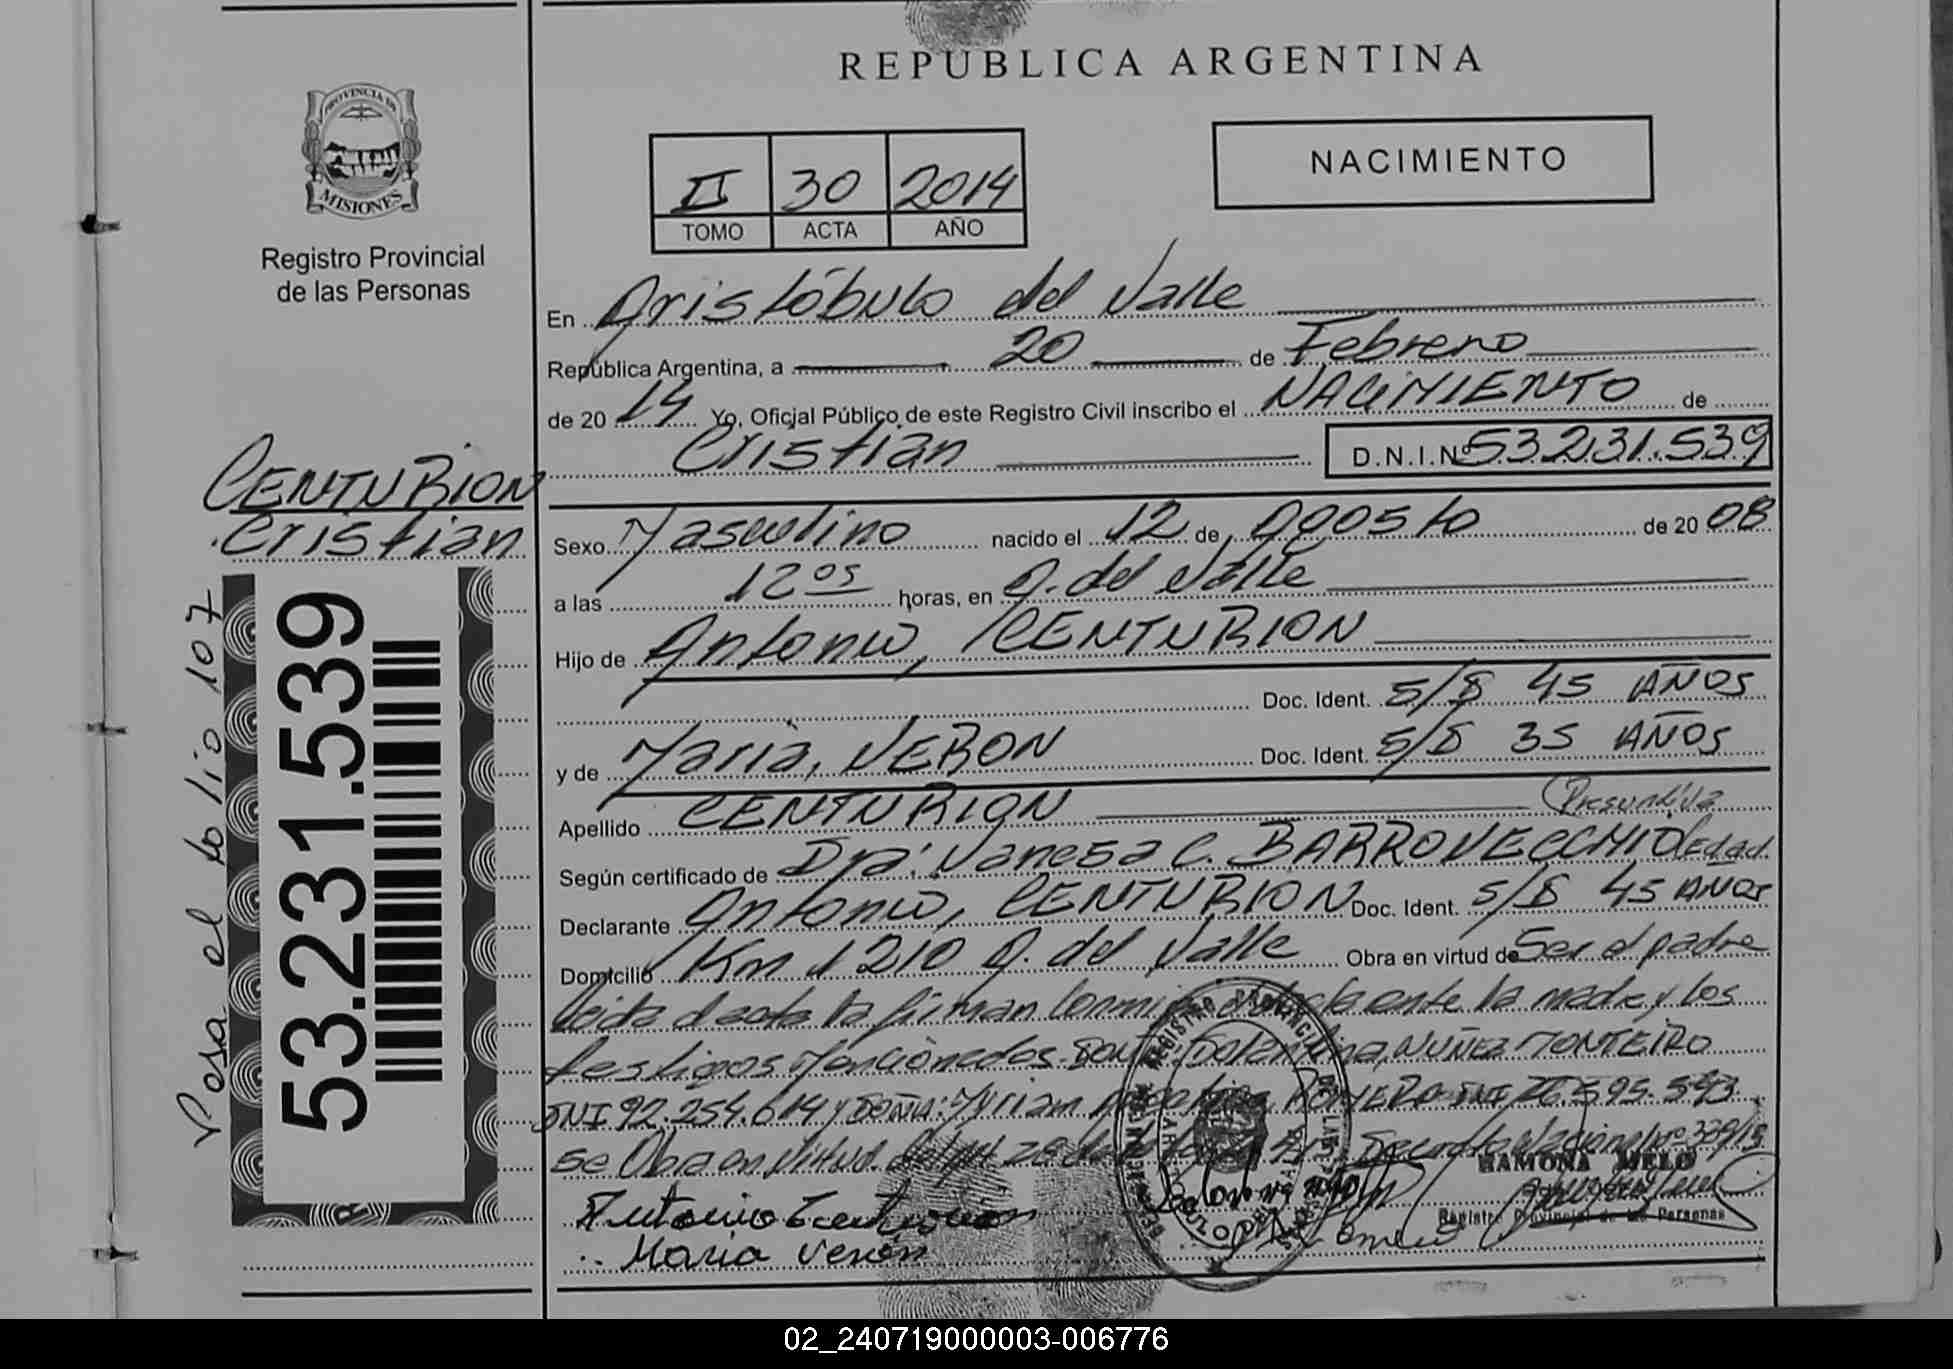 REPUBLICA ARGENTINA
PROVINCIA DE
MISIONES
Registro Provincial
de las Personas
II 30 2014
TOMO ACTA AÑO
NACIMIENTO
En Aristóbulo del Valle
República Argentina, a 20 de Febrero
de 20 14 Yo, Oficial Público de este Registro Civil inscribo el NACIMIENTO de
Cristian D.N.I.Nº 53.231.539
CENTURION
Cristian
Sexo Masculino nacido el 12 de Agosto de 20 08
a las 12 05 horas, en A. del Valle
Hijo de Antonio, CENTURION
Doc. Ident. S/D 45 AÑOS
y de Maria, VERON Doc. Ident. S/D 35 AÑOS
Apellido CENTURION (Presuntiva
Según certificado de Dra: Vanesa C. BARROVECCHIO Edad.
Declarante Antonio, CENTURION Doc. Ident. S/D 45 AÑOS
Domicilio Km 1210 A. del Valle Obra en virtud de Ser el padre
Leída el acta la firman conmigo el declarante la madre y los
testigos mencionados NUÑEZ MONTEIRO
DNI 92.254.614 y DOÑA: Myrian ROMERO DNI 26.595.543
se Obra en virtud del Art 28 de Decreto Nacional Nº 339/13
RAMONA MELO
Registro Provincial de las Personas
Antonio Centurión
Maria Verón
REGISTRO PROVINCIAL
Pasa al folio 107
53.231.539
02_240719000003-006776